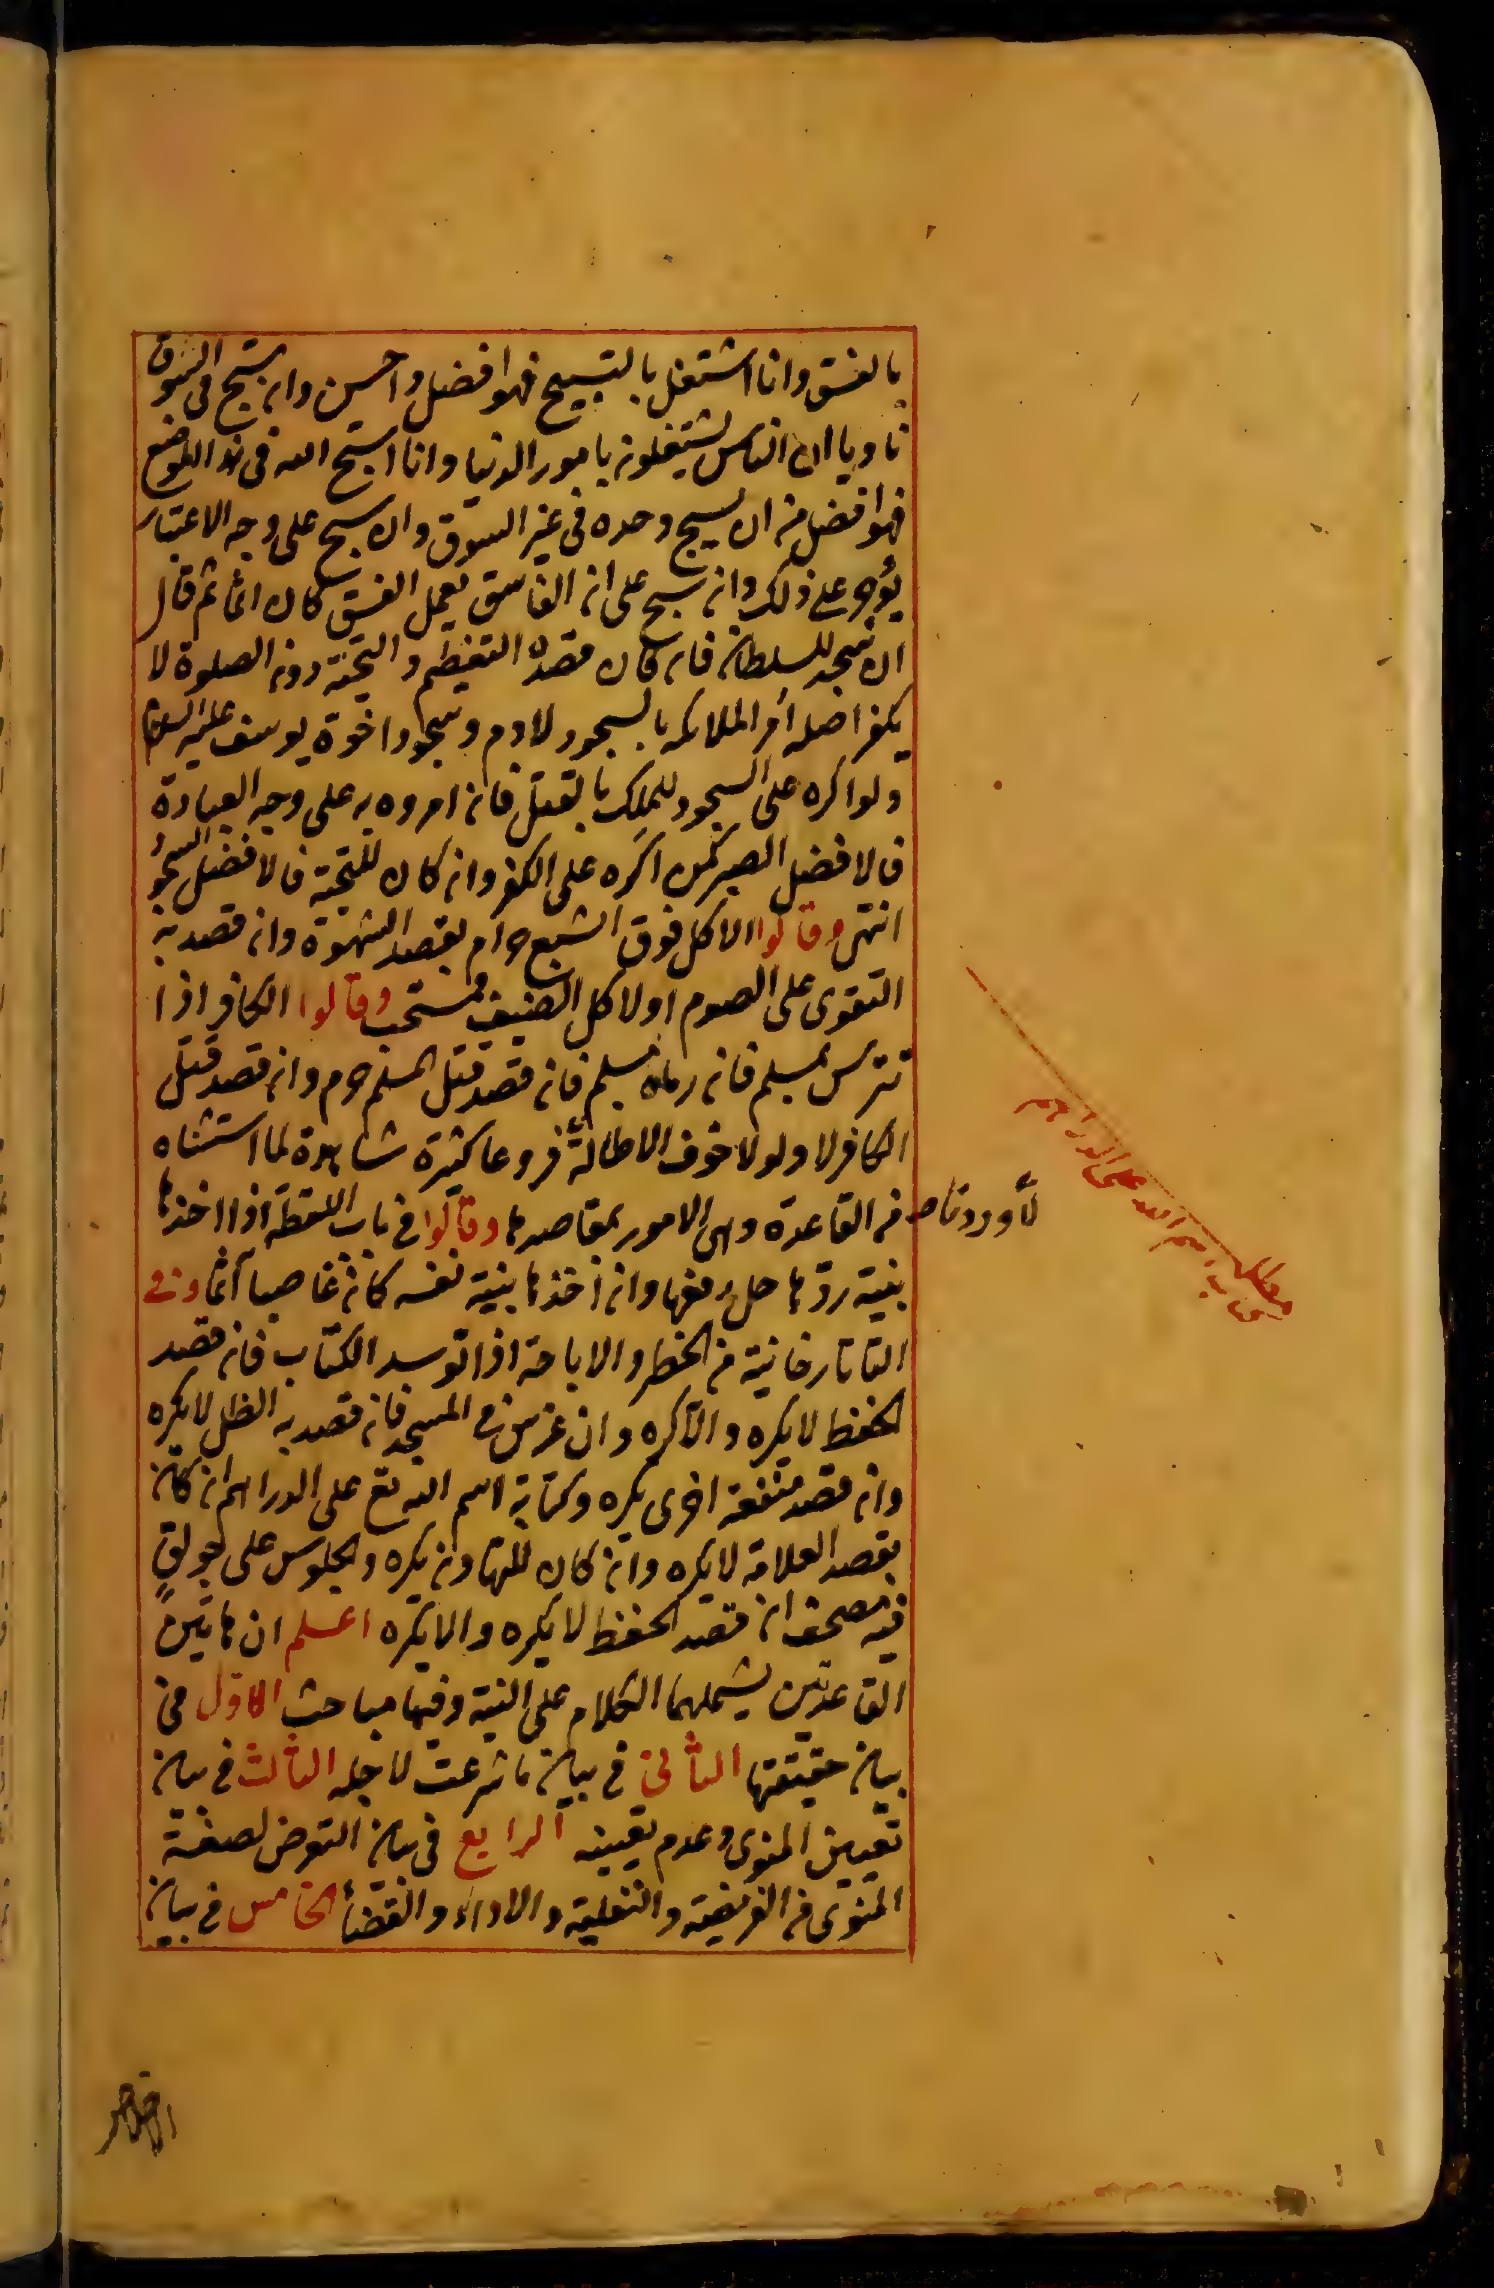 بالفسق وانا اشتغل بالتسبيح فهو افضل واحسن وان سبح فى السوق
ناويا ان الناس يشتغلون بامور الدنيا وانا اسبح الله فى هذا الموضع
فهو افضل من ان يسبح وحده فى غير السوق وان سبح على وجه الاعتبار
يؤجر على ذلك وان سبح على ان الفاسق يعمل الفسق كان اثما ثم قال
ان سجد للسلطان فان كان قصده التعظيم والتحية دون الصلوة لا
يكفر اصله امر الملائكه بالسجود لادم وسجود اخوة يوسف عليه السلام
ولو اكره على السجود للملك بالقتل فان امروه به على وجه العبادة
فالافضل الصبر كمن اكره على الكفر وان كان للتحية فالافضل السجود
انتهى وقالوا الاكل فوق الشبع حرام بقصد الشهوة وان قصد به
التقوى على الصوم او لاكل الضيف فمستحب وقالوا الكافر اذا
تترس بمسلم فان رماه مسلم فان قصد قتل المسلم حرم وان قصد قتل
الكافر لا ولولا خوف الاطالة فروعا كثيرة شاهدة لما استثناه
لأوردنا
من القاعدة وهى الامور بمقاصدها وقالوا فى باب اللقطة اذا اخذها
بنية ردها حل رفعها وان أخذها بنية نفسه كان غاصبا آثما وفى
التاتارخانية من الحظر والاباحة اذا توسد الكتاب فان قصد
الحفظ لا يكره والا كره وان غرس فى المسجد فان قصد به الظل لا يكره
وان قصد منفعة اخرى يكره وكتابة اسم الله تع على الدراهم ان كان
بقصد العلامة لا يكره وان كان للتهاون يكره والجلوس على جولق
فيه مصحف ان قصد الحفظ لا يكره والا يكره اعلم ان هاتين
القاعدتين يشملهما الكلام على النية وفيها مباحث الاول فى
بيان حقيقتها الثانى فى بيان ما شرعت لاجله الثالث فى بيان
تعيين المنوى وعدم تعيينه الرابع فى بيان التعرض لصفة
المنوى من الفريضة والنفلية والاداء والقضأ الخامس فى بيان
مطلب
اسم الله على الدراهم